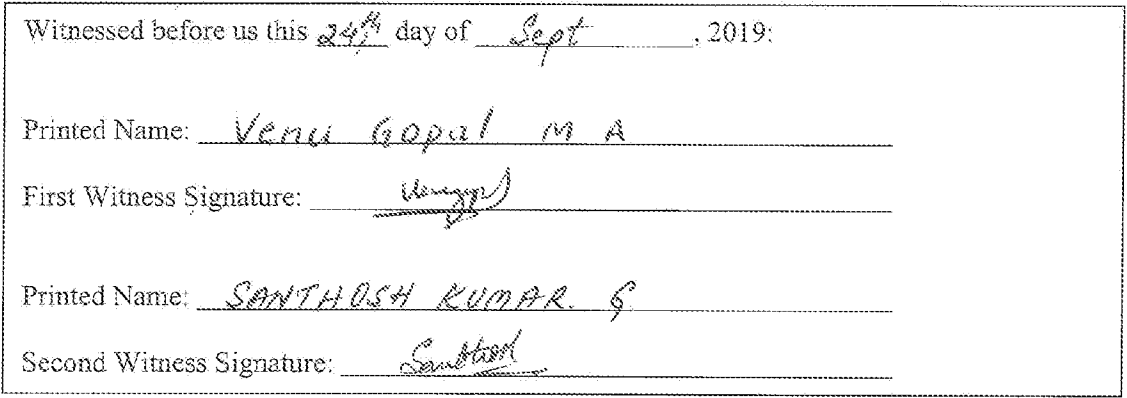 Witnessed before us this 24th day of Sept, 2019:
Printed Name: Venu Gopal M A
First Witness Signature: Venugop
Printed Name: SANTHOSH KUMAR. G
Second Witness Signature: Santhosh